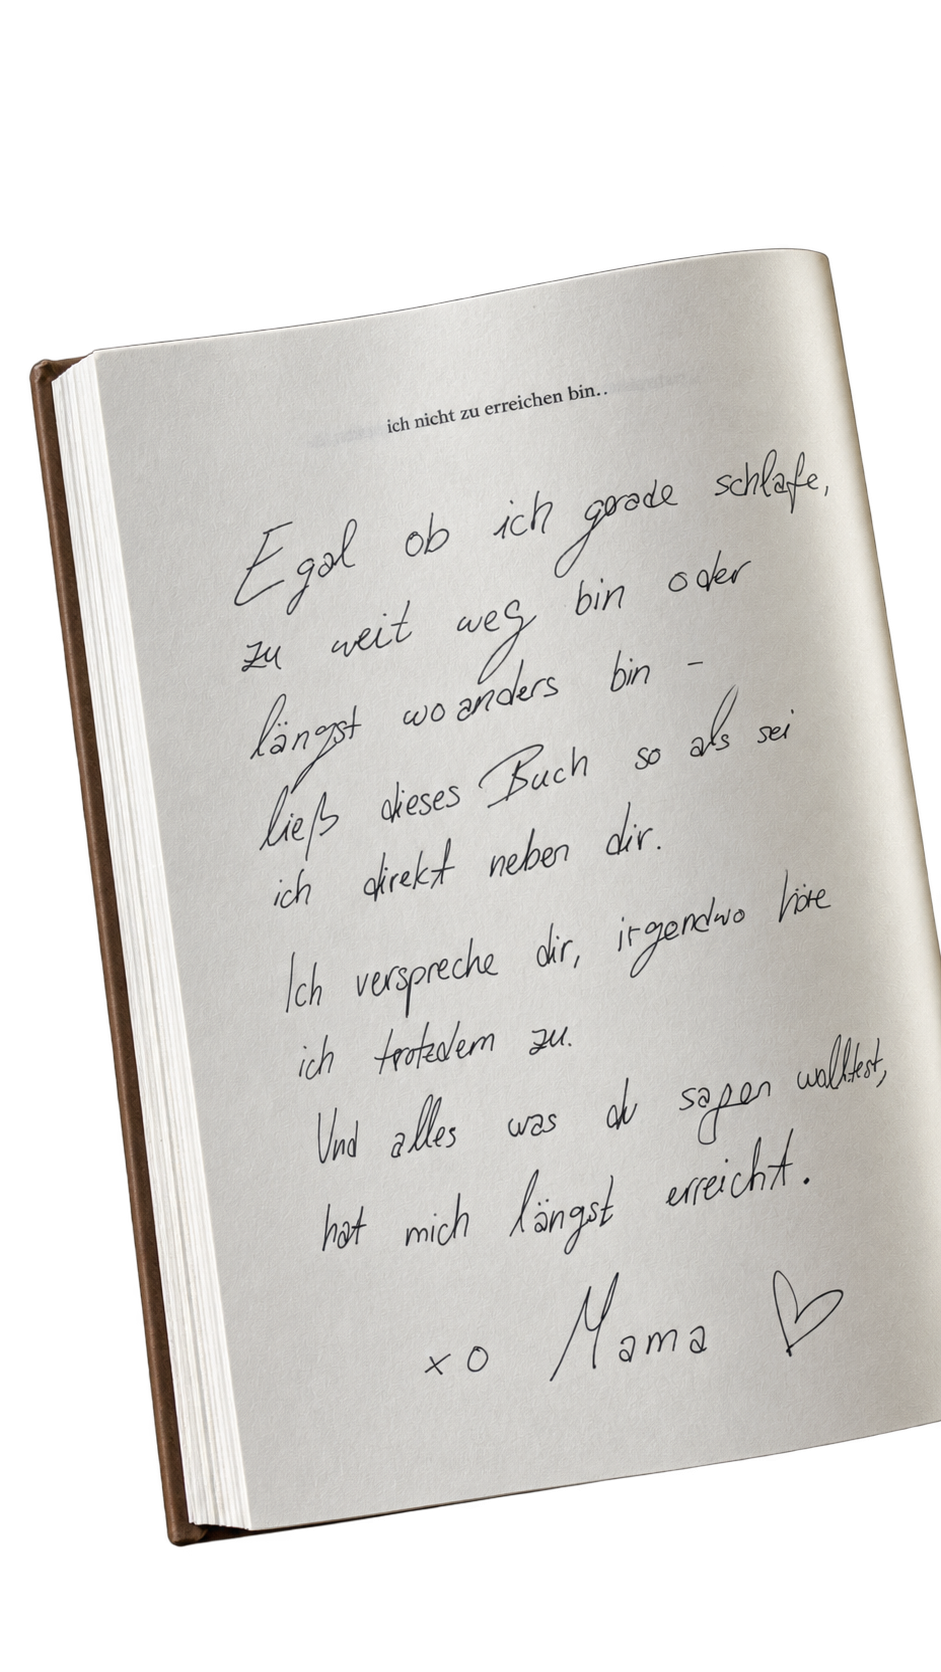 ich nicht zu erreichen bin..
Egal ob ich gerade schlafe,
zu weit weg bin oder
längst woanders bin -
ließ dieses Buch so als sei
ich direkt neben dir.
Ich verspreche dir, irgendwo höre
ich trotzdem zu.
Und alles was du sagen wolltest,
hat mich längst erreicht.
xo Mama